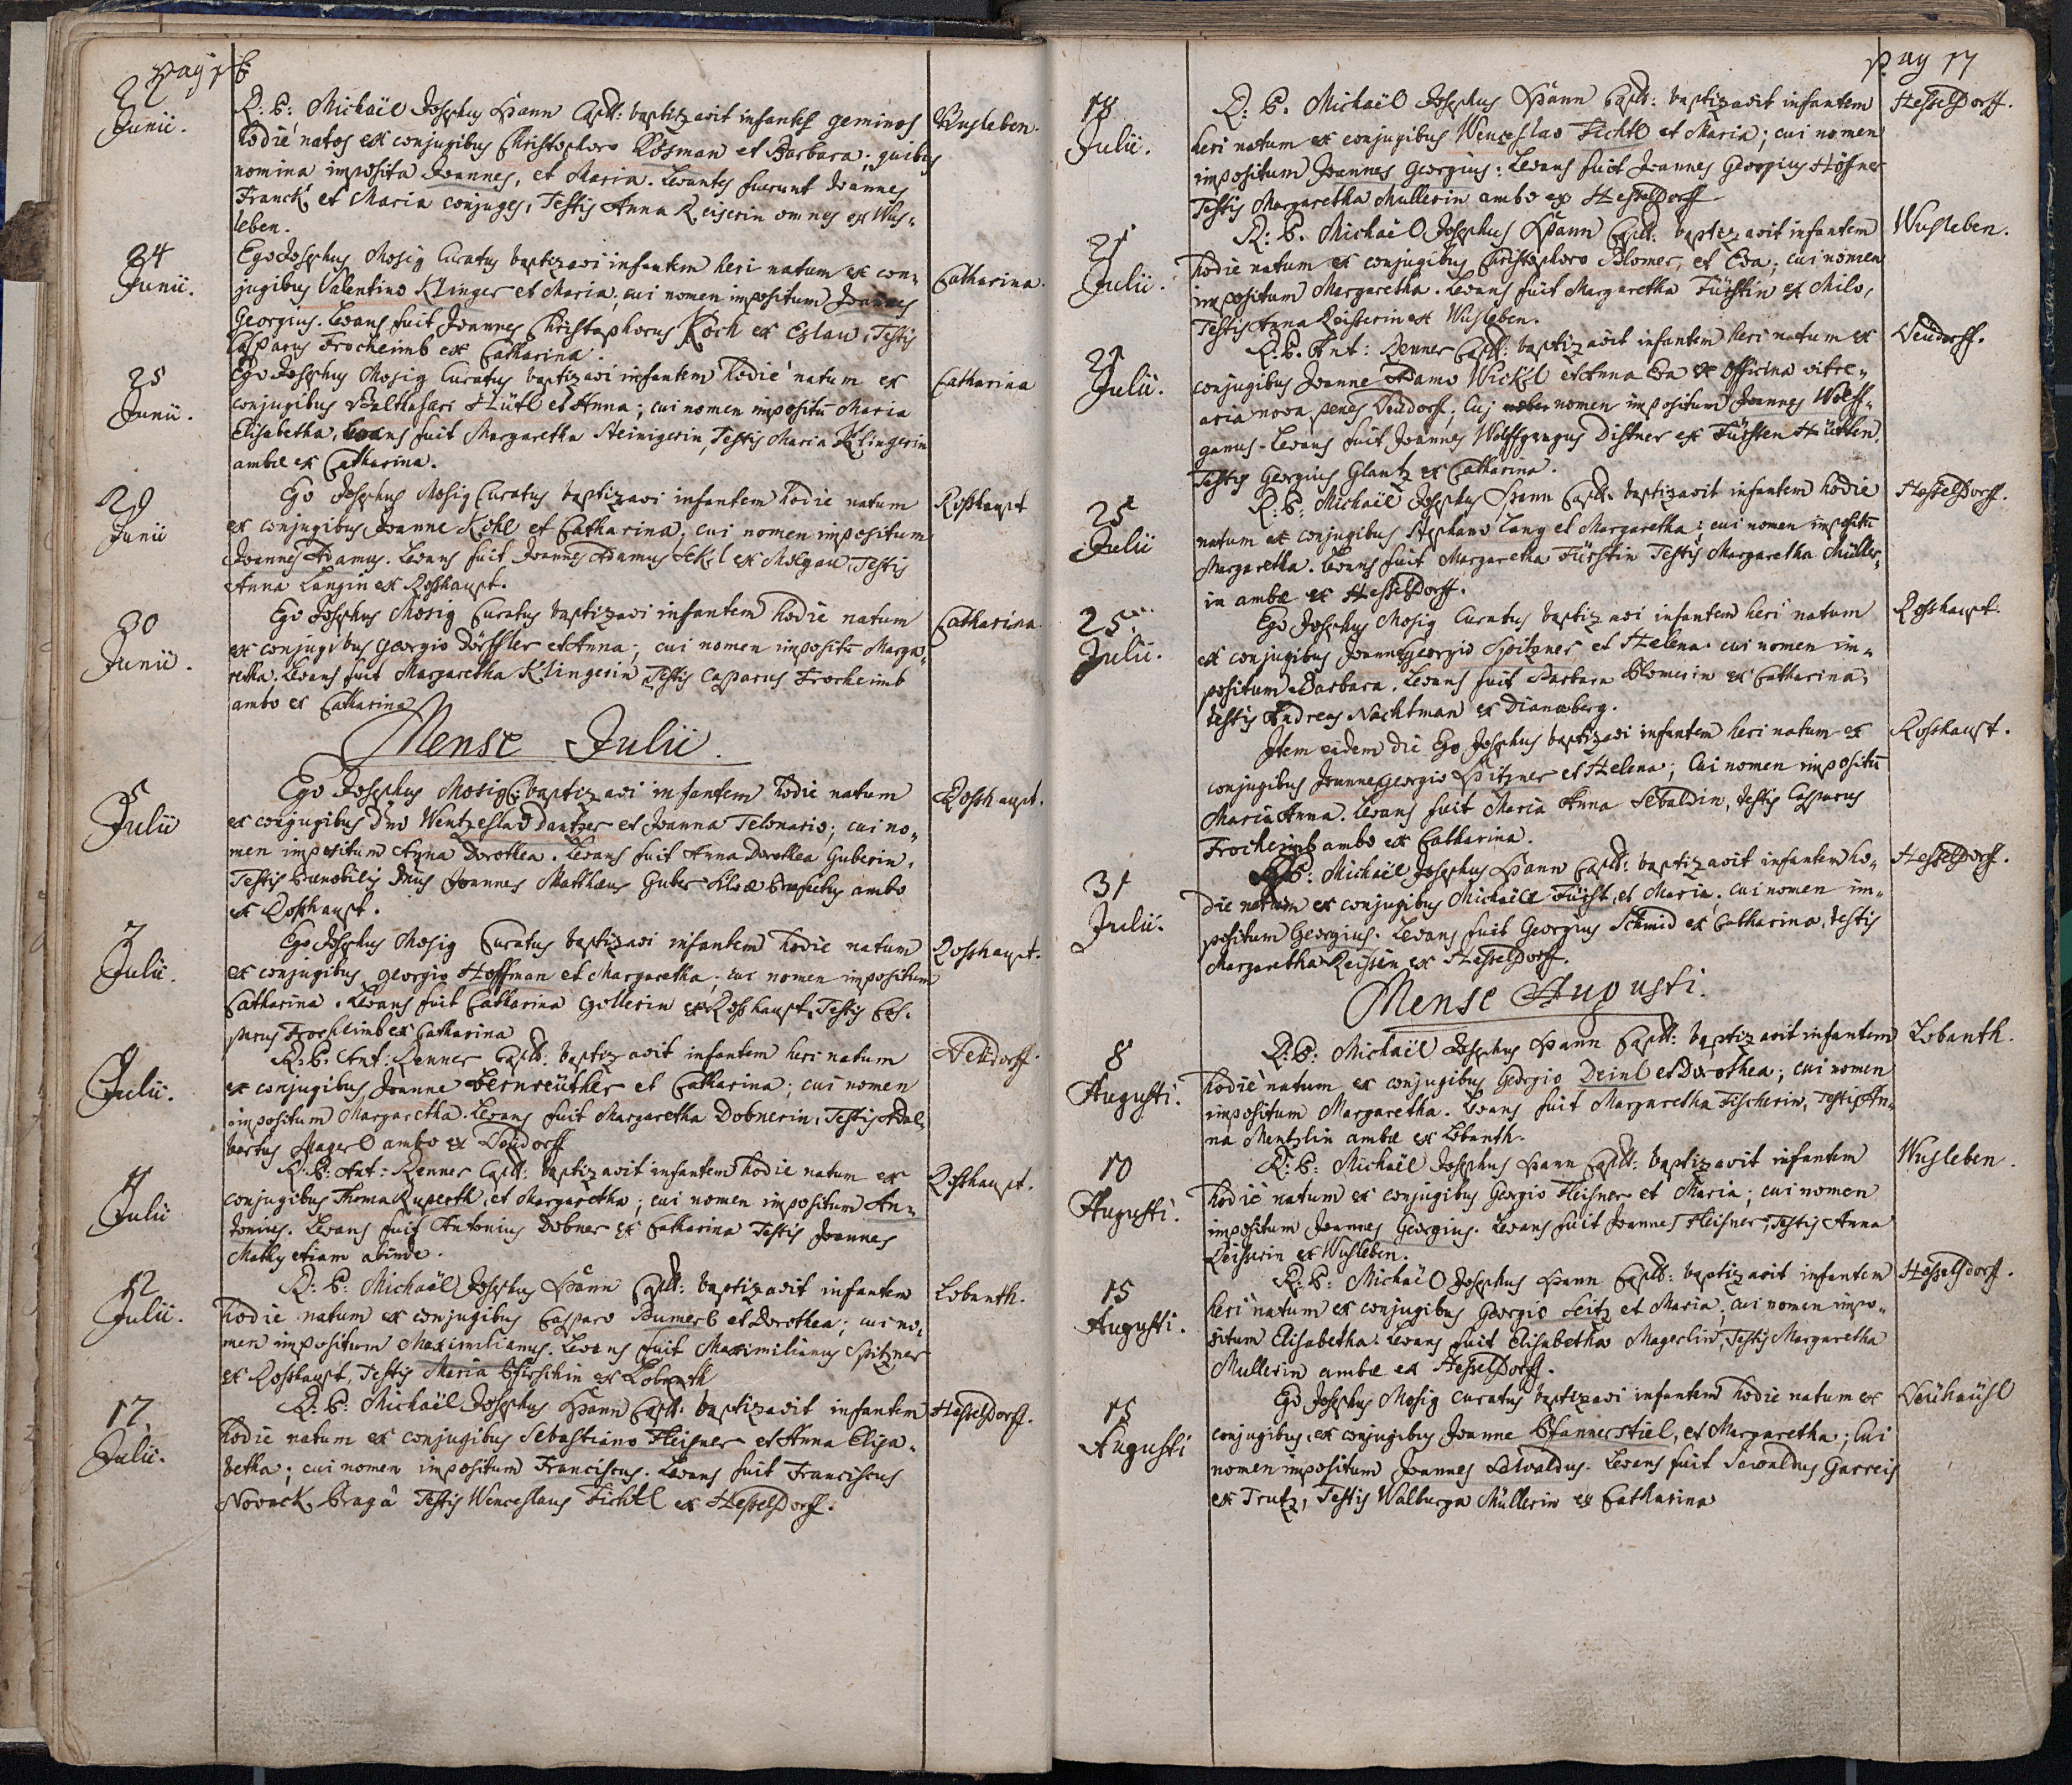 pag 16
22 Junii.
R: P: Michaël Josephus Hann Capll: baptizavit infantes geminos Wusleben.
hodie natos ex conjugibus Christophoro Rosman et Barbara; quibus
nomina imposita Joannes, et Maria. Levantes fuerunt Joannes
Franck et Maria conjuges, Testis Anna Reiserin omnes ex Wus-
leben.
24 Junii.
Ego Josephus Mosig Curatus baptizavi infantem heri natum ex con- Catharina.
jugibus Valentino Klinger et Maria; cui nomen impositum Joannes
Georgius. Levans fuit Joannes Christophorus Koch ex Eslau, Testis
Casparus Frocheimb ex Catharina.
25 Junii.
Ego Josephus Mosig Curatus baptizavi infantem hodie natum ex Catharina
conjugibus Balthasari Hütl et Anna; cui nomen impositū Maria
Elisabetha, Levans fuit Margaretha Steinigerin, Testis Maria Klingerin
ambæ ex Catharina.
29 Junii
Ego Josephus Mosig Curatus baptizavi infantem hodie natum Rosshaupt
ex conjugibus Joanne Kohl et Catharina; cui nomen impositum
Joannes Adamus. Levans fuit Joannes Adamus Ekl ex Molgau, Testis
Anna Langin ex Rosshaupt.
30 Junii.
Ego Josephus Mosig Curatus baptizavi infantem hodie natum Catharina.
ex conjugibus Georgio Dörffler et Anna; cui nomen impositū Marga-
retha. Levans fuit Margaretha Klingerin, Testis Casparus Frocheimb
ambo ex Catharina
Mense Julii.
5 Julii
Ego Josephus Mosig C: baptizavi infantem hodie natum Rosshaupt.
ex conjugibus Dno Wentzeslao Dantzer et Joanna Telonario; cui no-
men impositum Anna Dorothea. Levans fuit Anna Dorothea Guberin,
Testis Prænobilis Dnus Joannes Matthæus Guber Præfectus ambo
ex Rosshaupt.
7 Julii.
Ego Josephus Mosig Curatus baptizavi infantem hodie natum Rosshaupt.
ex conjugibus Georgio Hoffman et Margaretha; cui nomen impositum
Catharina. Levans fuit Catharina Gollerin ex Rosshaupt, Testis Cas-
parus Frocheimb ex Catharina
9 Julii.
R: P: Ant: Renner Capll: baptizavit infantem heri natum Neudorff.
ex conjugibus Joanne Bernreüther et Catharina; cui nomen
impositum Margaretha. Levans fuit Margaretha Dobnerin, Testis Adal-
bertus Magerl ambo ex Neudorff
11 Julii
R: P: Ant: Renner Capll: baptizavit infantem hodie natum ex Rosshaupt.
conjugibus Thoma Ruperth et Margaretha; cui nomen impositum An-
tonius. Levans fuit Antonius Dobner ex Catharina Testis Joannes
Mathy etiam abinde.
12 Julii.
R: P: Michaël Josephus Hann Capll: baptizavit infantem Lobanth.
hodie natum ex conjugibus Casparo Bumerl et Dorothea; cui no-
men impositum Maximilianus. Levans fuit Maximilianus Spitzner
ex Rosshaupt, Testis Maria Pfirschin ex Lobanth
17 Julii.
R: P: Michaël Josephus Hann Capll: baptizavit infantem Hesselsdorff.
hodie natum ex conjugibus Sebastiano Fleisner et Anna Elisa-
betha; cui nomen impositum Franciscus. Levans fuit Franciscus
Novack Pragâ Testis Wenceslaus Fichtl ex Hesselsdorff.
pag 17
18 Julii.
R: P. Michaël Josephus Hann Capll: baptizavit infantem Hesselsdorff.
heri natum ex conjugibus Wenceslao Fichtl et Maria; cui nomen
impositum Joannes Georgius: Levans fuit Joannes Georgius Höffner
Testis Margaretha Mullerin ambo ex Hesselsdorff
21 Julii.
R: P. Michaël Josephus Hann Capll: baptizavit infantem Wusleben.
hodie natum ex conjugibus Christophoro Blomer, et Eva; cui nomen
impositum Margaretha. Levans fuit Margaretha Fürstin ex Milo,
Testis Anna Reiserin ex Wusleben.
21 Julii.
R: P. Ant: Renner Capll: baptizavit infantem heri natum ex Neudorff.
conjugibus Joanne Adamo Wickl et Anna Eva ex Officina vitre-
aria nova penes Neudorff; cuj nomen impositum Joannes Wolff-
gamus. Levans fuit Joannes Wolffgangus Distner ex Fürsten Hütten.
Testis Georgius Glantz ex Catharina.
25 Julii
R: P: Michaël Josephus Hann Capll: baptizavit infantem hodie Hesselsdorff.
natum ex conjugibus Stephano Lang et Margaretha; cui nomen impositū
Margaretha. Levans fuit Margaretha Fürstin Testis Margaretha Müller-
in ambæ ex Hesselsdorff.
25 Julii.
Ego Josephus Mosig Curatus baptizavi infantem heri natum Rosshaupt.
ex conjugibus Joanne Georgio Spitzner et Helena cui nomen im-
positum Barbara. Levans fuit Barbara Blomerin ex Catharina,
testis Andreas Nachtman ex Dianaberg.
Item eidem die Ego Josephus baptizavi infantem heri natum ex Rosshaupt.
conjugibus Joanne Georgio Spitzner et Helena; cui nomen impositū
Maria Anna. Levans fuit Maria Anna Sebaldin, testis Casparus
Frocheimb ambo ex Catharina.
31 Julii.
R: P: Michaël Josephus Hann Capll: baptizavit infantem ho- Hesselsdorff.
die natum ex conjugibus Michaële Fürst, et Maria. cui nomen im-
positum Georgius. Levans fuit Georgius Schmid ex Catharina, testis
Margaretha Reisin ex Hesselsdorff.
Mense Augusti.
8 Augusti.
R: P: Michaël Josephus Hann Capll: baptizavit infantem Lobanth.
hodie natum ex conjugibus Georgio Deinl et Dorothea; cui nomen
impositum Margaretha. Levans fuit Margaretha Fischerin, Testis An-
na Mentzlin ambæ ex Lobanth.
10 Augusti.
R: P: Michaël Josephus Hann Capll: baptizavit infantem Wusleben.
hodie natum ex conjugibus Georgio Fleisner et Maria; cui nomen
impositum Joannes Georgius. Levans fuit Joannes Fleisner, Testis Anna
Reisserin ex Wusleben.
15 Augusti.
R: P: Michaël Josephus Hann Capll: baptizavit infantem Hesselsdorff.
heri natum ex conjugibus Georgio Seitz et Maria, cui nomen impo-
situm Elisabetha. Levans fuit Elisabetha Magerlin, Testis Margaretha
Mullerin ambæ ex Hesselsdorff.
15 Augusti
Ego Josephus Mosig Curatus baptizavi infantem hodie natum ex Neühaüsl
conjugibus, ex conjugibus Joanne Pfannerstiel, et Margaretha; cui
nomen impositum Joannes Sewaldus. Levans fuit Sewaldus Garreis
ex Trutz, Testis Walburga Müllerin ex Catharina